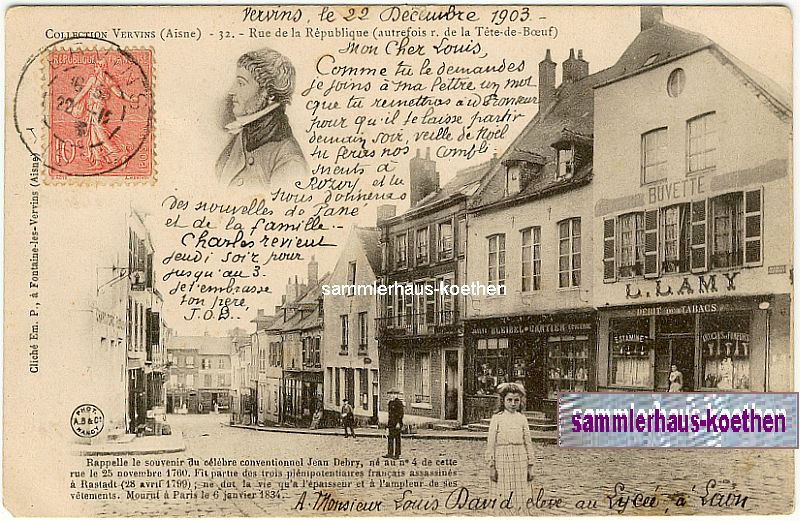 Vervins, le 22 Décembre 1903. -
COLLECTION VERVINS (Aisne) - 32. - Rue de la République (autrefois r. de la Tête-de-Bœuf)
Mon Cher Louis,
Comme tu le demandes
je joins à ma lettre un mot
que tu remettras à
pour qu'il te laisse partir
demain soir, veille de Noël
tu feras nos Compli-
ments à
Rozoy et tu
nous donneras
des nouvelles de
et de la famille. -
Charles revient
jeudi soir pour
jusqu'au 3.
je t'embrasse
ton père
J.O.B.
RÉPUBLIQUE FRANÇAISE
10
22
Cliché Em. P., à Fontaine-les-Vervins (Aisne)
BUVETTE
L. LAMY
DÉBIT DE TABACS
ESTAMINET
BLEIBEL-CARTIER
sammlerhaus-koethen
sammlerhaus-koethen
PHOT.
A.B & C°
NANCY
Rappelle le souvenir du célèbre conventionnel Jean Debry, né au n° 4 de cette
rue le 25 novembre 1760. Fit partie des trois plénipotentiaires français assassinés
à Rastadt (28 avril 1799); ne dut la vie qu'à l'épaisseur et à l'ampleur de ses
vêtements. Mourut à Paris le 6 janvier 1834.
A Monsieur Louis David, élève au Lycée, à Laon